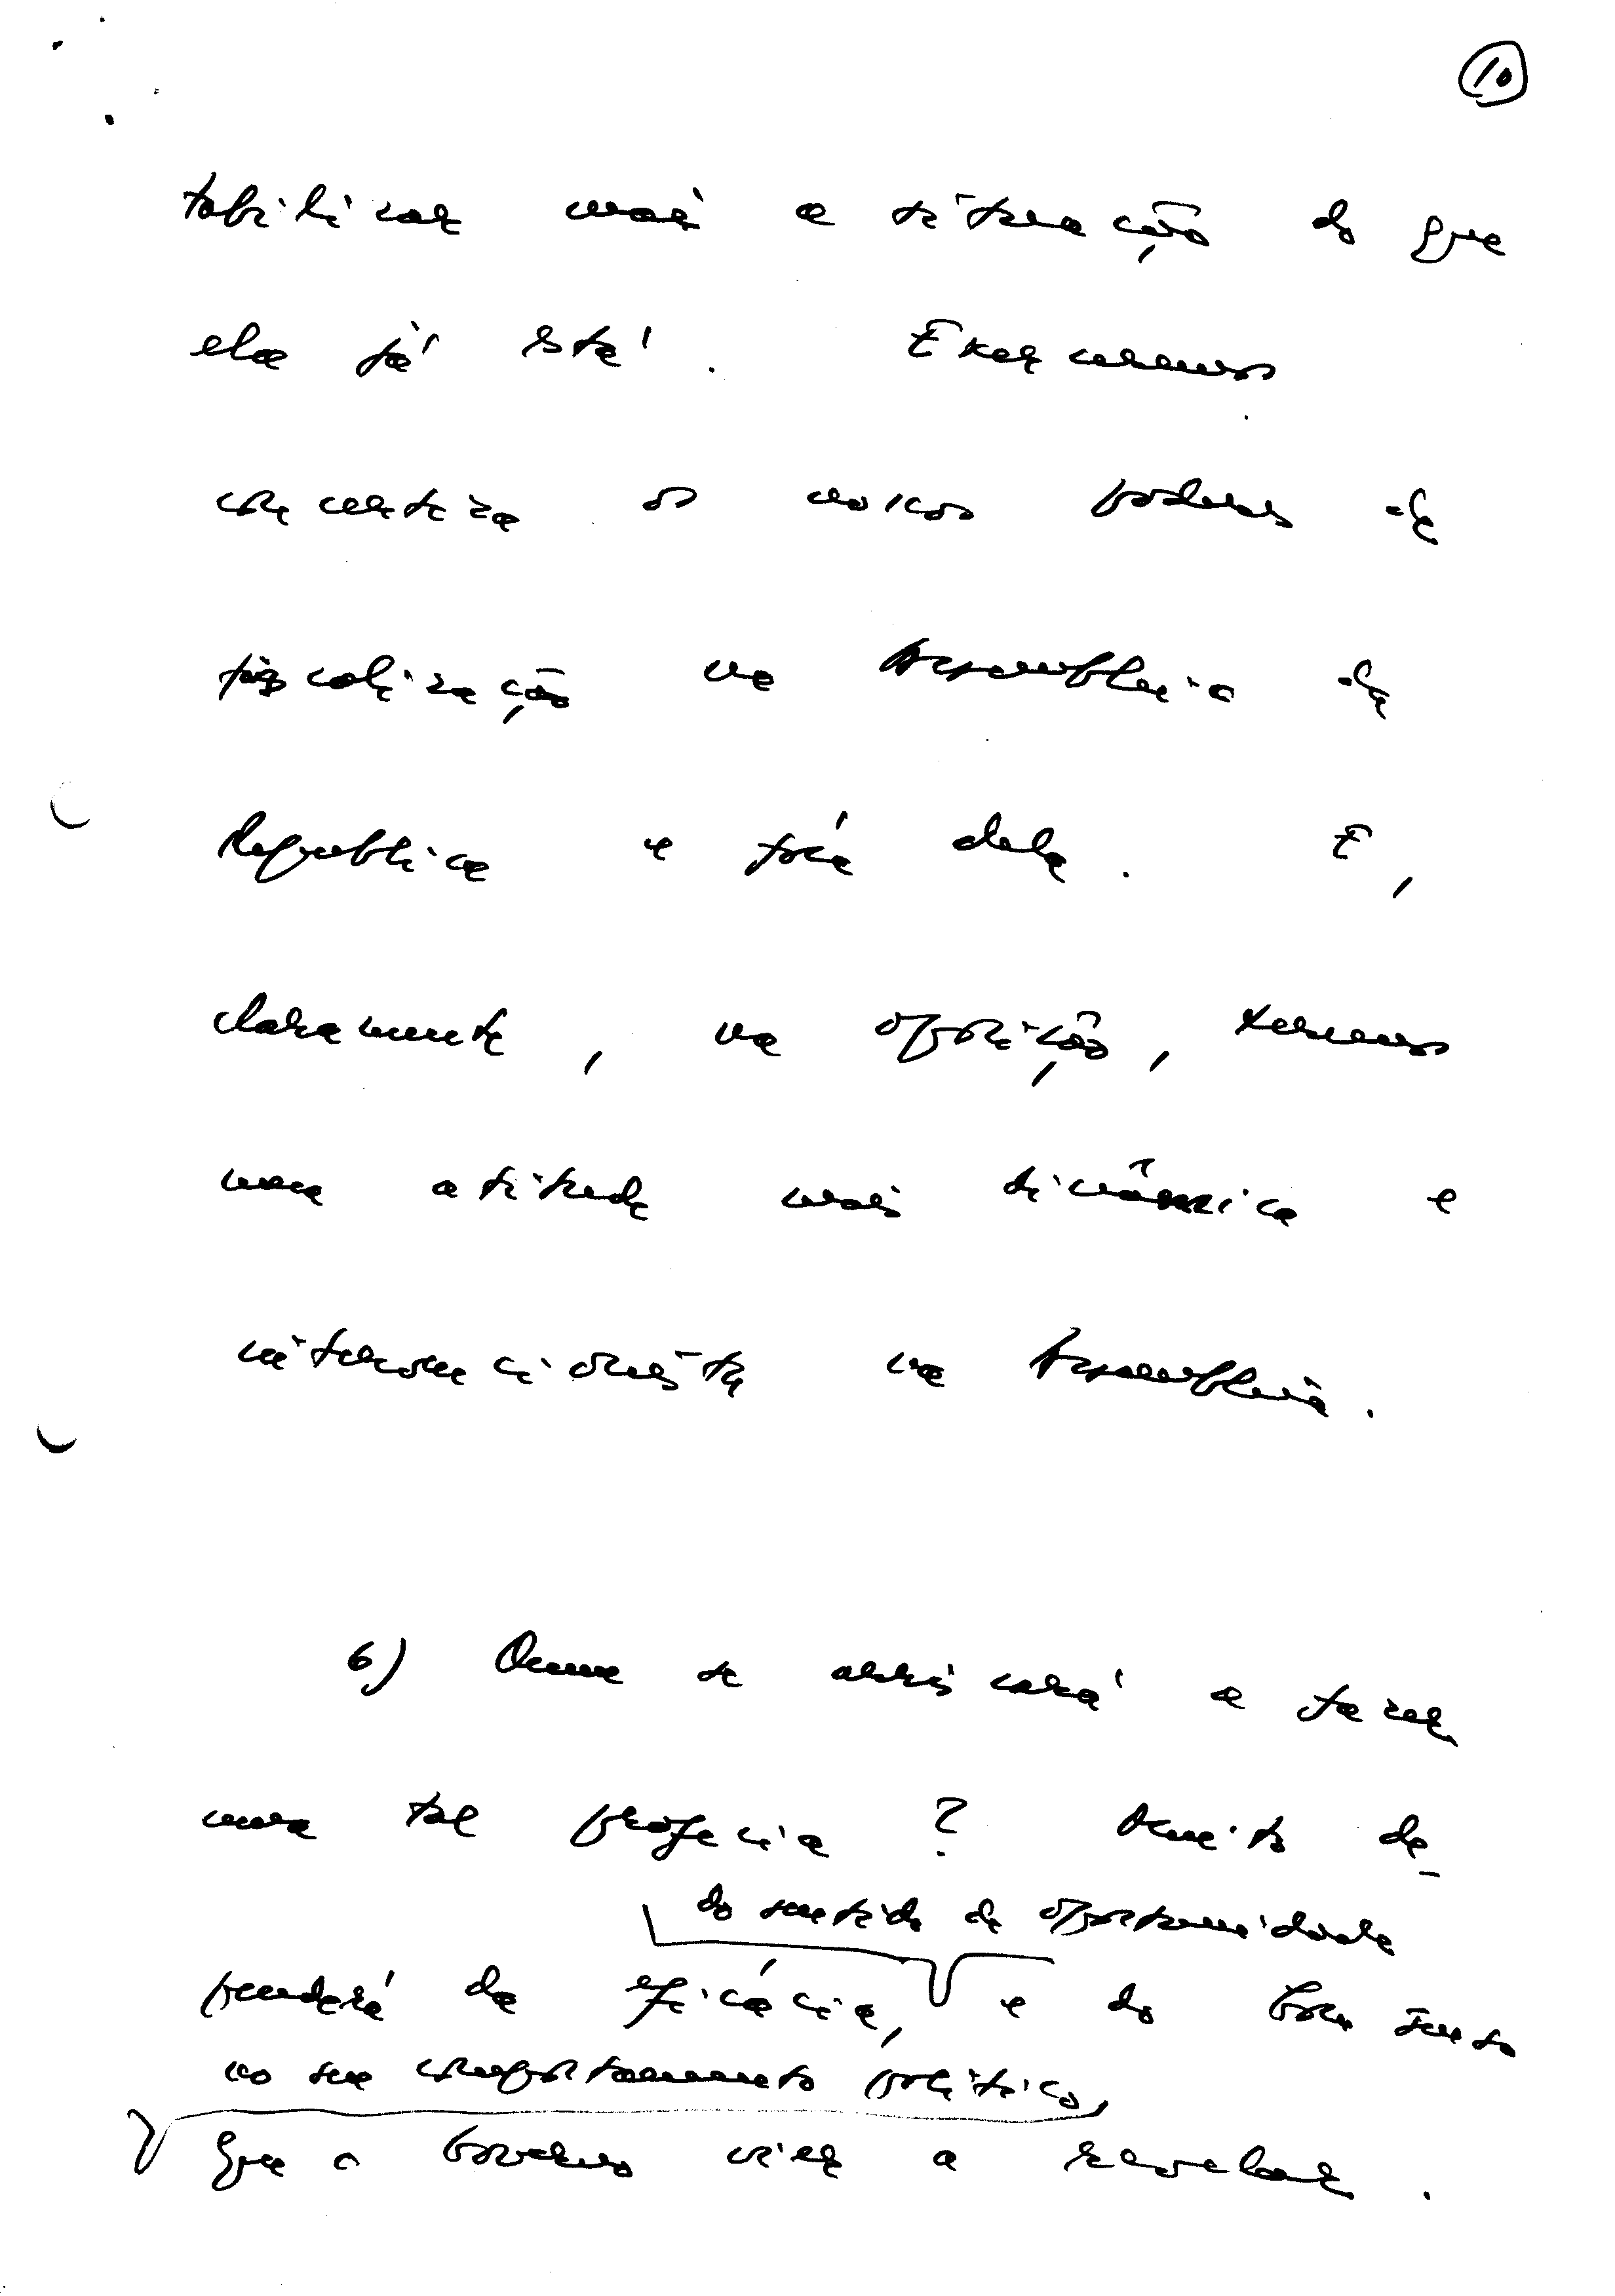 10
tabilizar mais a situação do que
ela já está. Exerceremos
com certeza os novos poderes de
fiscalização na Assembleia da
República e fora dela. E,
claramente, na oposição, teremos
uma atitude mais dinâmica e
intervencionista na Assembleia.
6) Quem se arriscará a fazer
uma tal profecia? Muito de-
do sentido de oportunidade
penderá da eficácia, e do bom senso
no seu comportamento político,
que o Governo vier a revelar.